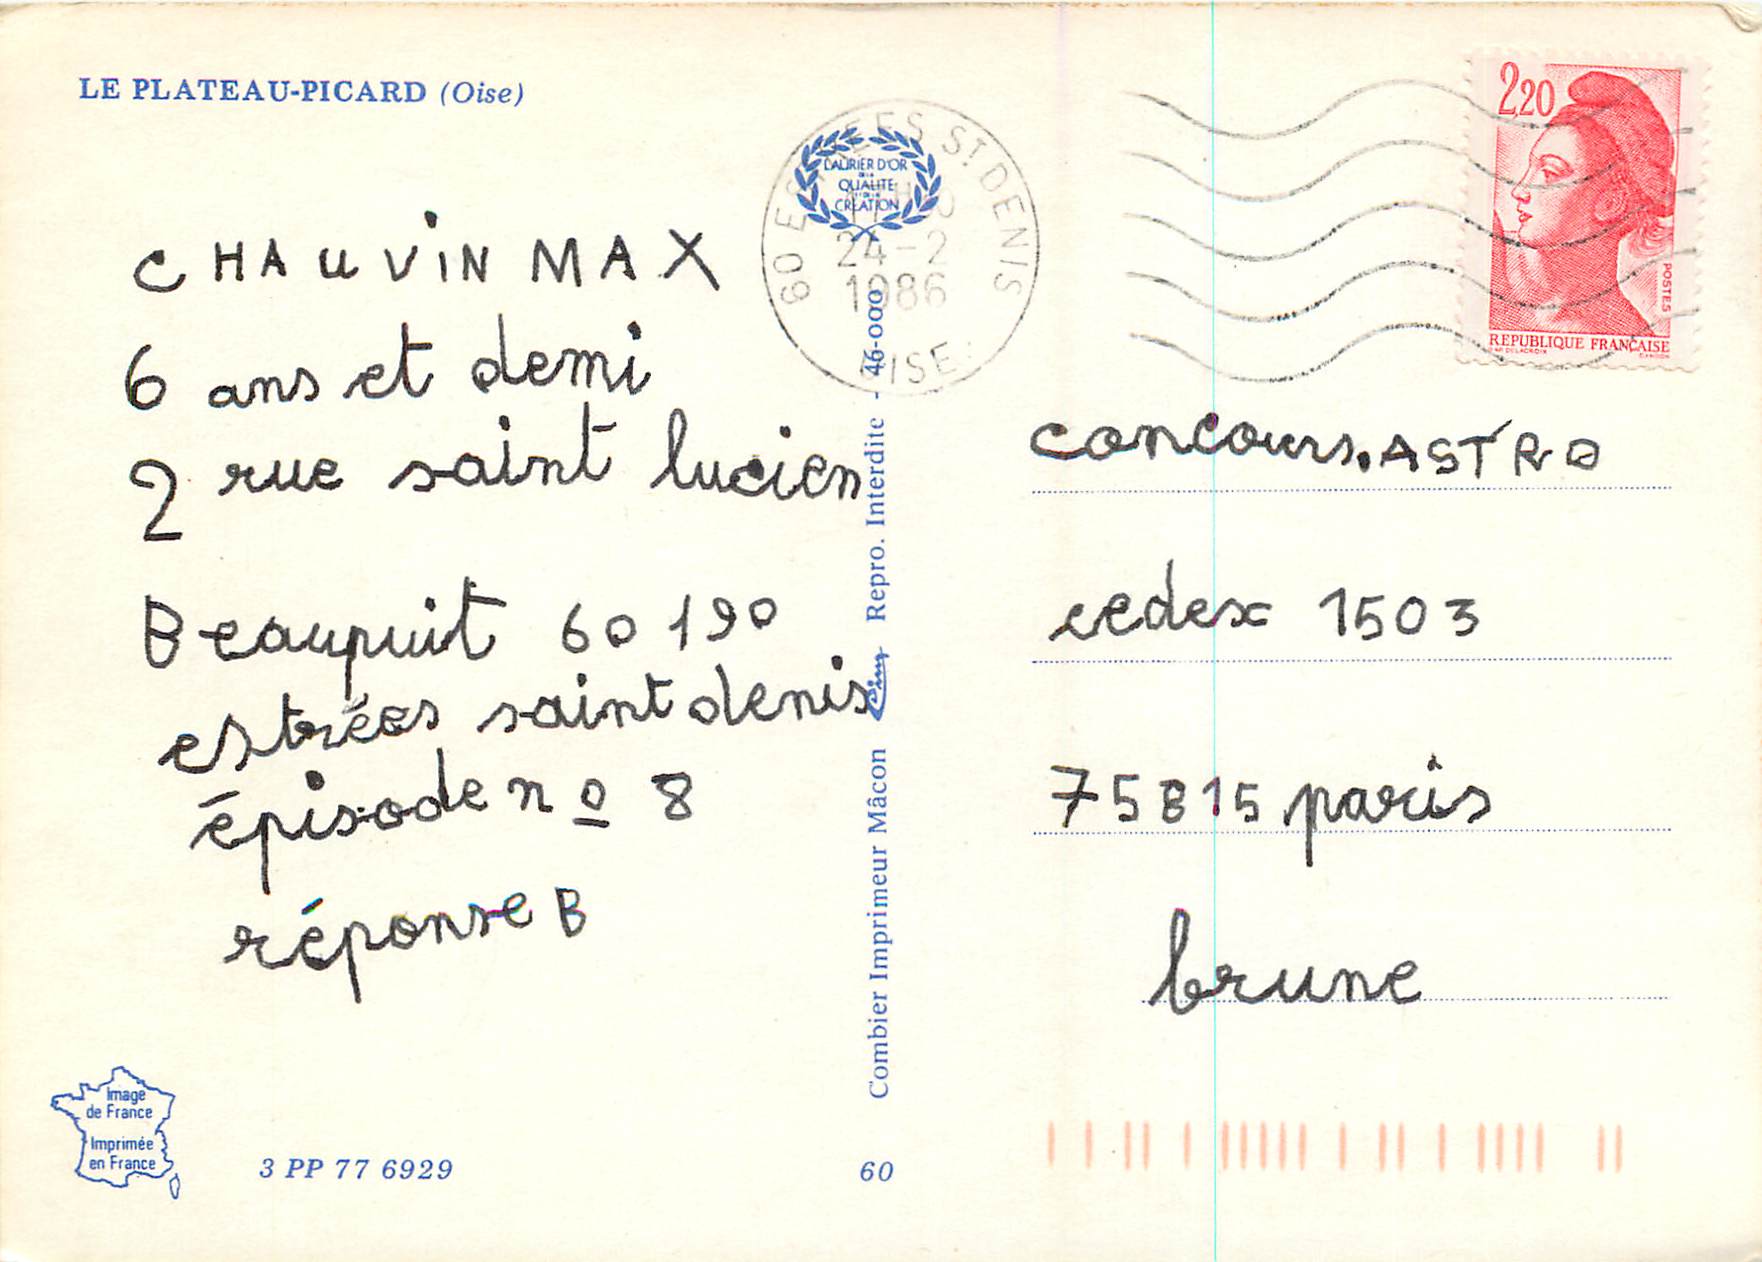 LE PLATEAU-PICARD (Oise)
CHAUVIN MAX
6 ans et demi
2 rue saint lucien
Beaupuit 60190
estrées saint denis
épisode no 8
réponse B
Image
de France
Imprimée
en France
3 PP 77 6929
60
Combier Imprimeur Mâcon Cim Repro. Interdite - 46-000
LAURIER D'OR
DE LA
QUALITE
CREATION
60 ESTREES ST DENIS
24-2
1986
OISE
2,20
POSTES
REPUBLIQUE FRANÇAISE
concours.ASTRO
cedex 1503
75815 paris
brune